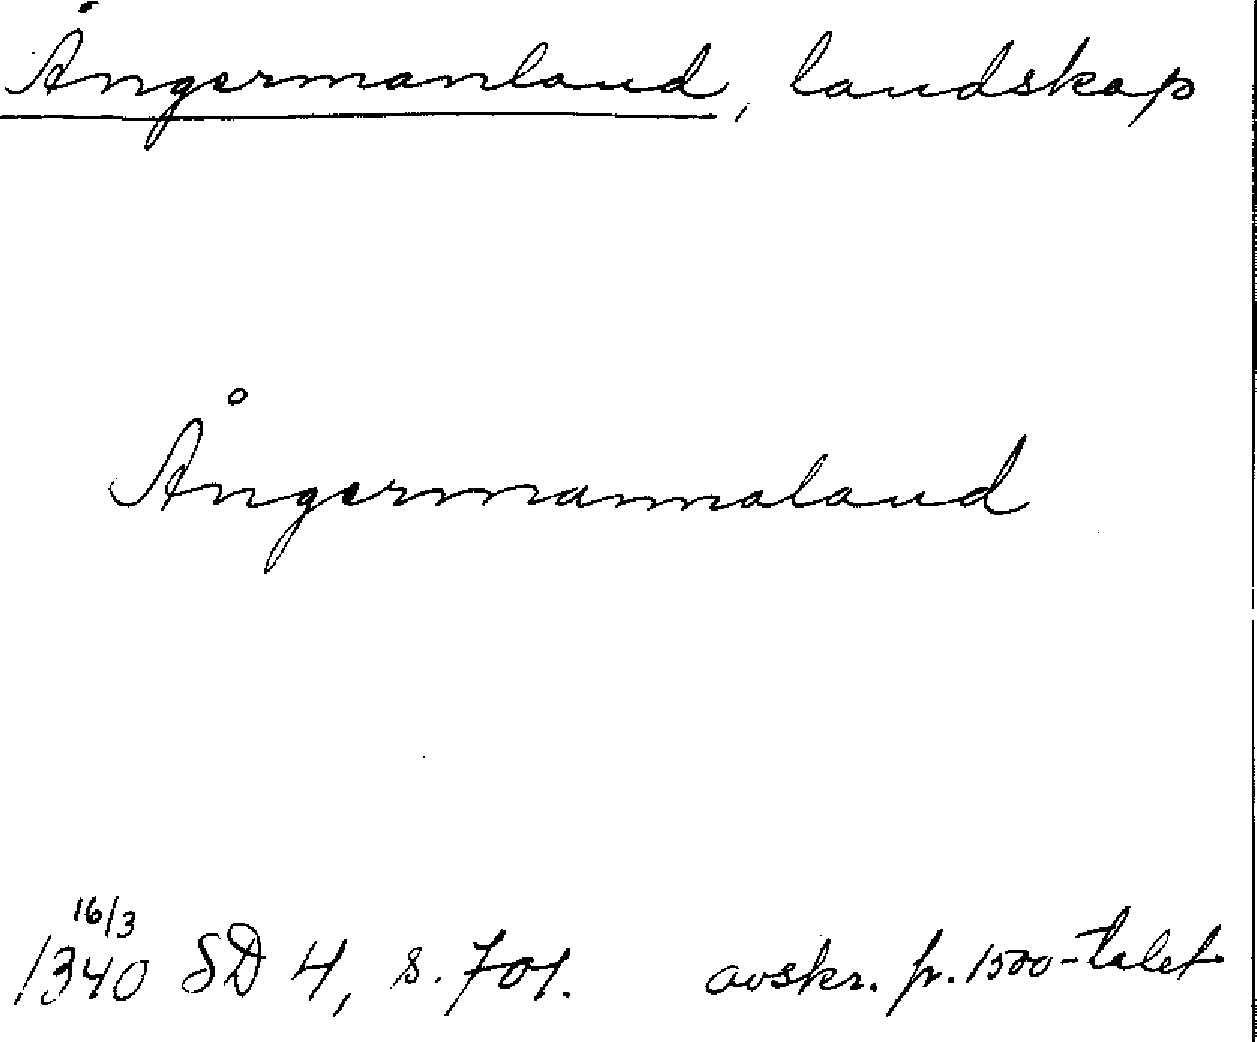 Ångermanland, landskap
Ångermannaland
16/3
1340 SD 4, s. 701. avskr. fr. 1500-talet